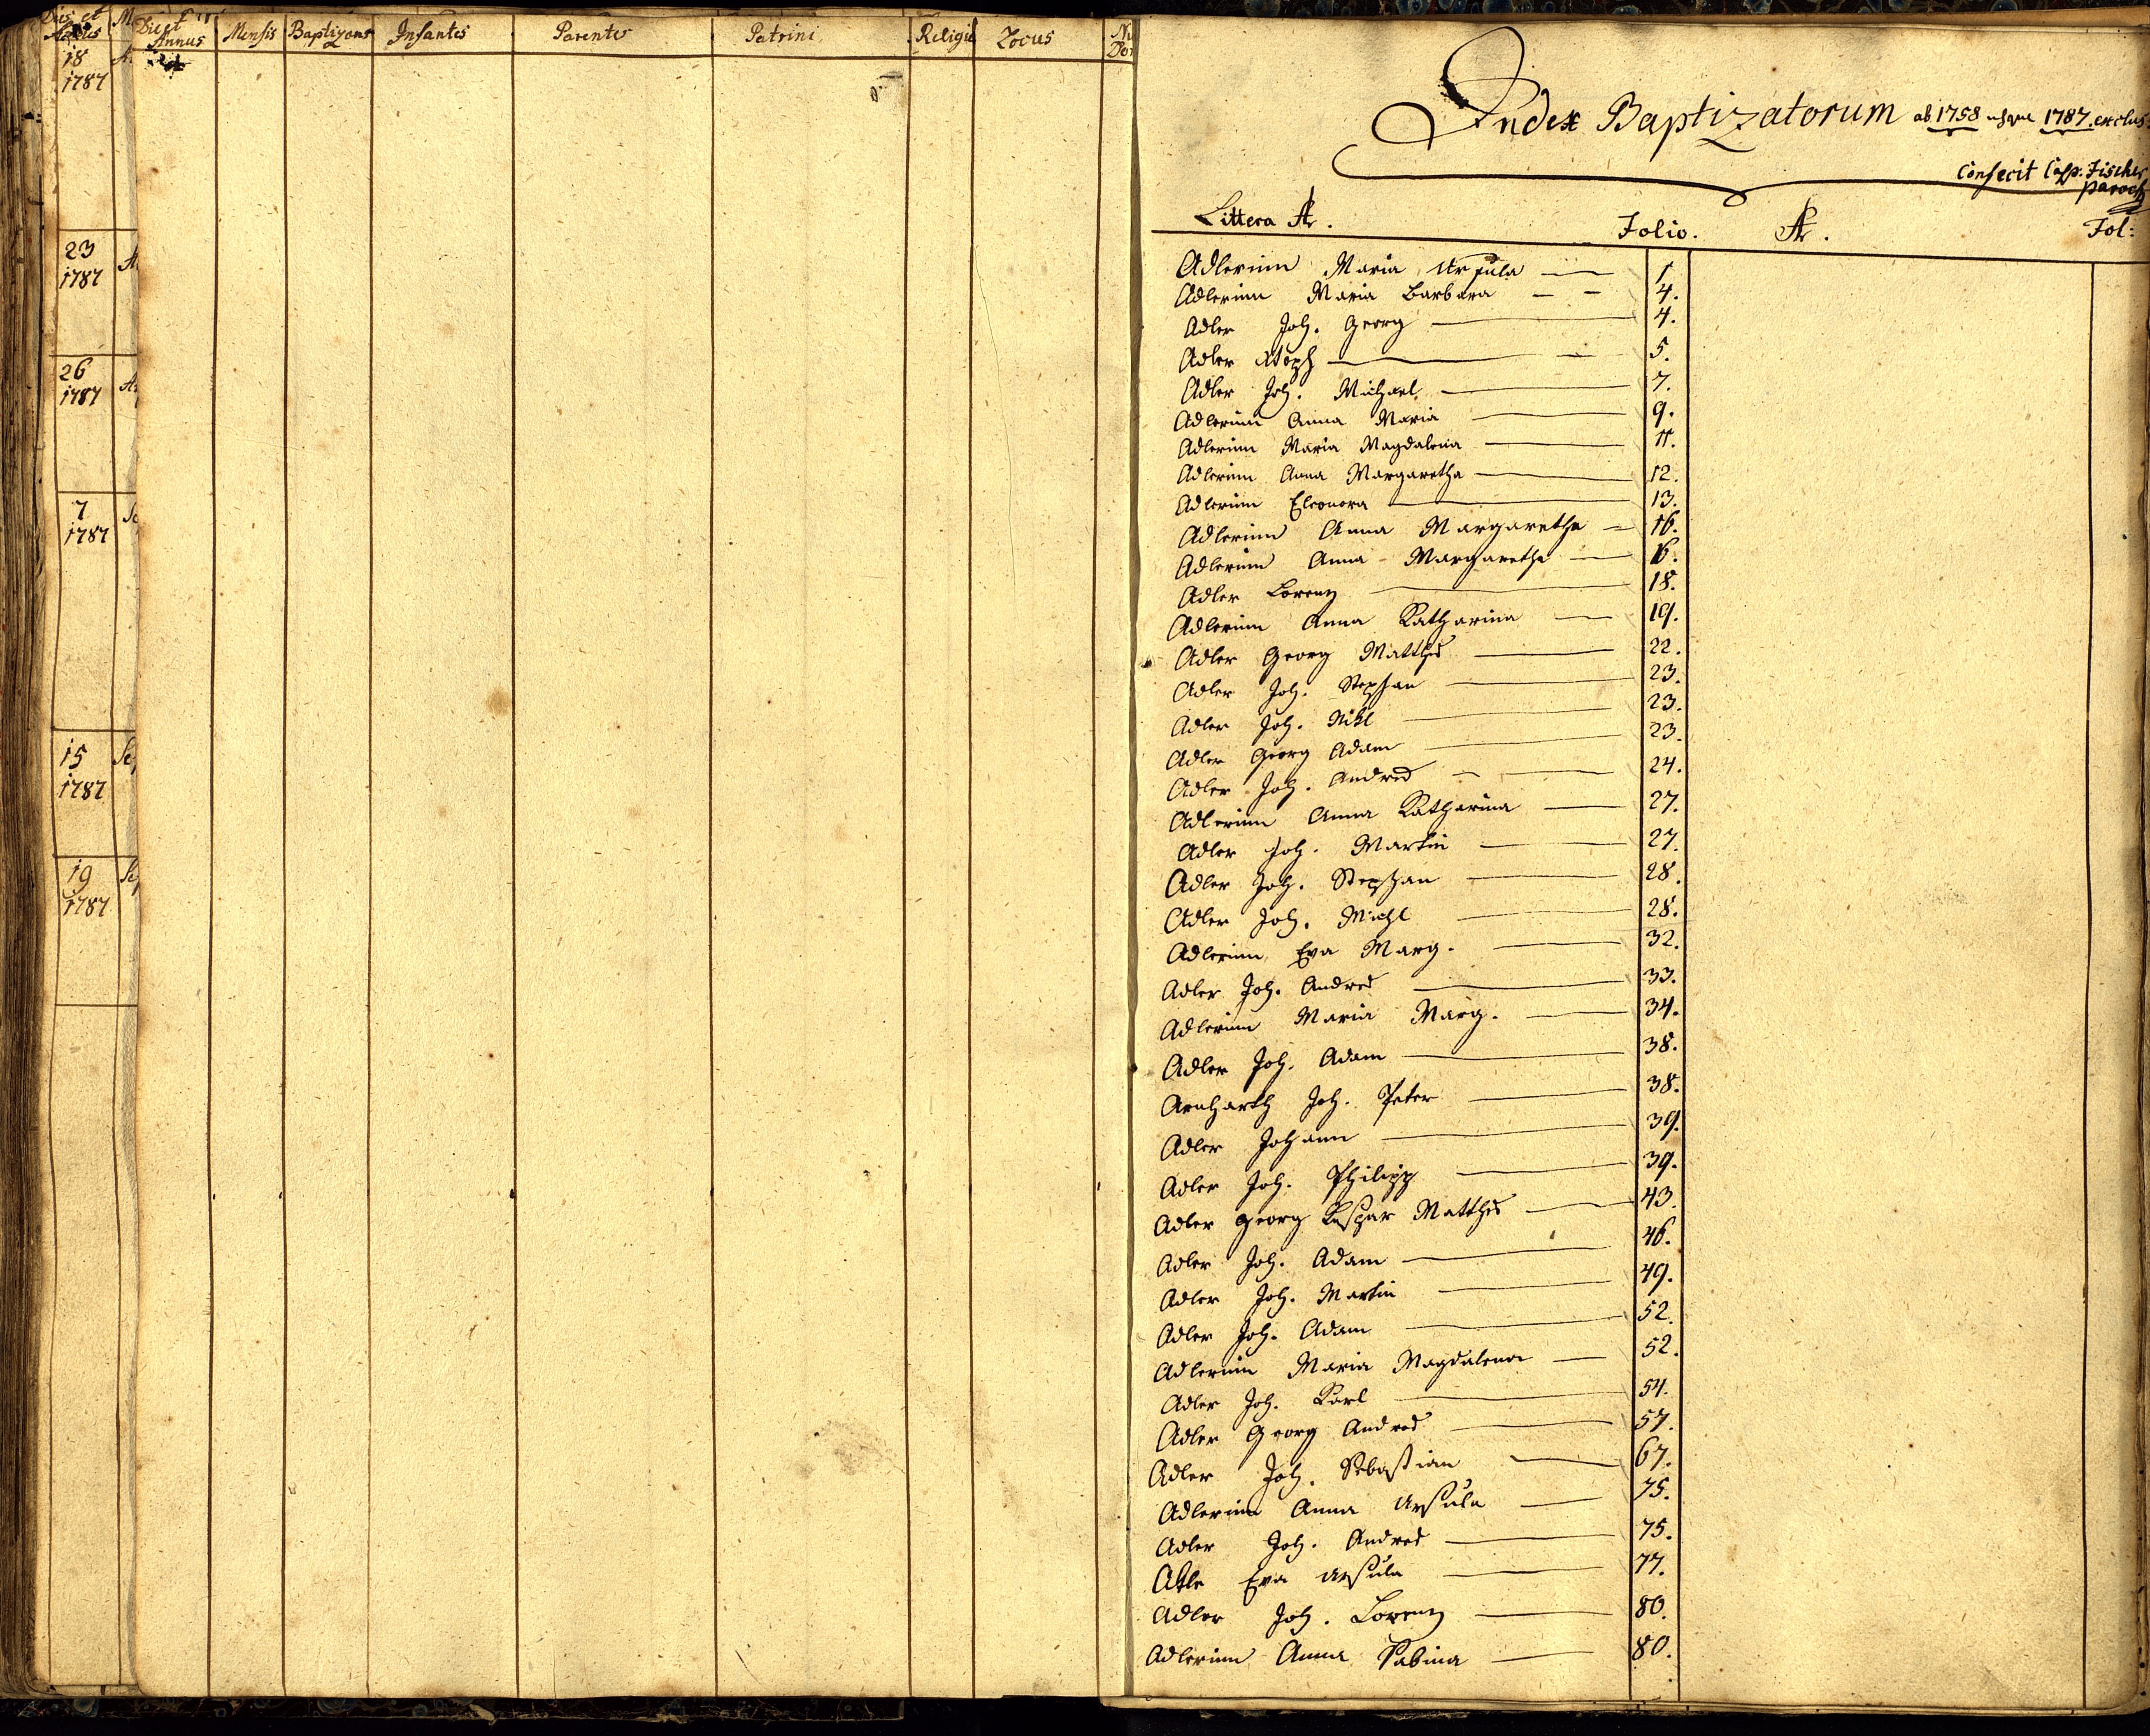 Dies et
18
1787
23
1787
26
1787
7
1787
15
1787
19
1787
Dies et Annus Mensis Baptizans Infantes Parentes Patrini Religio Locus
Index Baptizatorum ab 1758 usque 1787. exclus:
Confecit Casp. Fischer
paroch
Littera A. Folio. A. Fol:
Adlerinn Maria Ursula 1.
Adlerinn Maria Barbara 4.
Adler Joh. Georg 4.
Adler 5.
Adler Joh. Michael 7.
Adlerinn Anna Maria 9.
Adlerinn Maria Magdalena 11.
Adlerinn Anna Margaretha 12.
Adlerinn Eleonora 13.
Adlerinn Anna Margaretha 16.
Adlerinn Anna Margaretha 16.
Adler Lorenz 18.
Adlerinn Anna Katharina 19.
Adler Georg Matthes 22.
Adler Joh. Stephan 23.
Adler Joh. Nikl 23.
Adler Georg Adam 23.
Adler Joh. Andres 24.
Adlerinn Anna Katharina 27.
Adler Joh. Martin 27.
Adler Joh. Stephan 28.
Adler Joh. Michl 28.
Adlerinn Eva Marg. 32.
Adler Joh. Andres 33.
Adlerinn Maria Marg. 34.
Adler Joh. Adam 38.
Arnharth Joh. Peter 38.
Adler Johann 39.
Adler Joh. Philipp 39.
Adler Georg Kaspar Matthes 43.
Adler Joh. Adam 46.
Adler Joh. Martin 49.
Adler Joh. Adam 52.
Adlerinn Maria Magdalena 52.
Adler Joh. Karl 54.
Adler Georg Andres 57.
Adler Joh. Sebastian 67.
Adlerinn Anna Ursula 75.
Adler Joh. Andres 75.
Eva Ursula 77.
Adler Joh. Lorenz 80.
Adlerinn Anna Sabina 80.